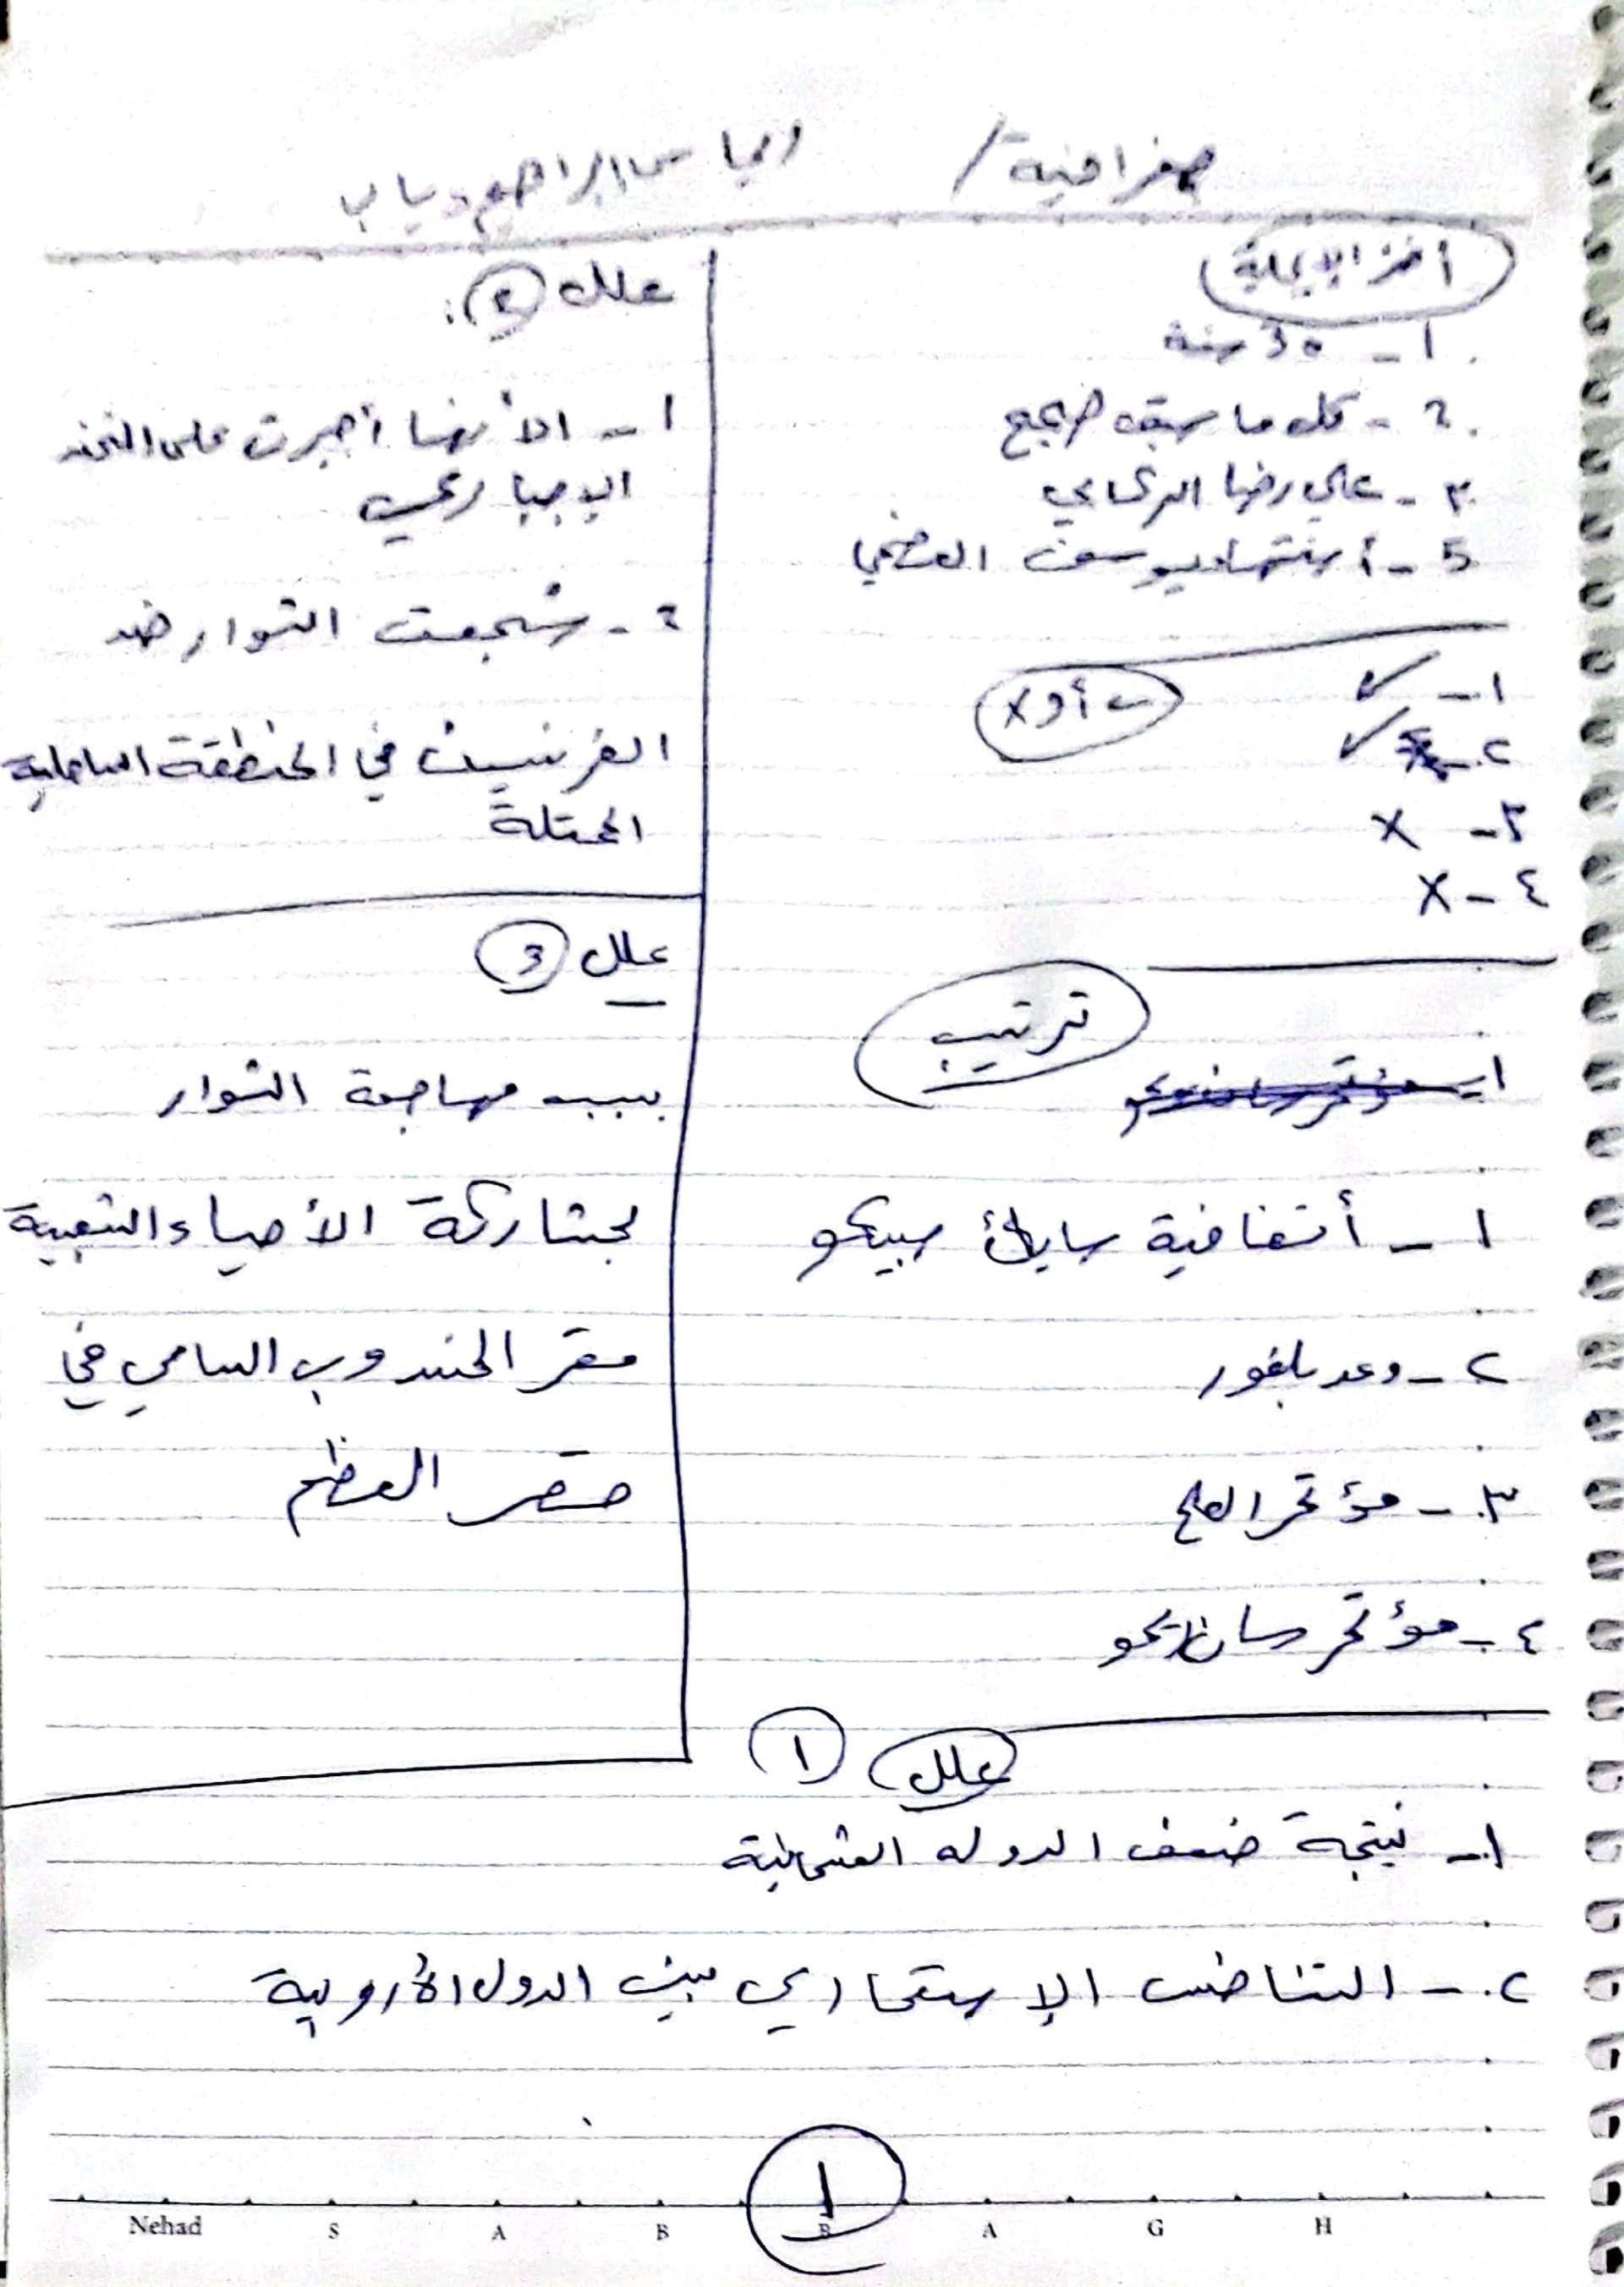 جغرافية / الياس ابراهيم دياب
أختر الإجابة
١ - ٣٥ سنة
٢ - كل ما سبق صحيح
٣ - علي رضا الركابي
5 - أستشهاد يوسف العظمي
✓ أو X
١ - ✓
٢ - ✓
٣ - X
٤ - X
ترتيب
١ - مؤتمر سان ريمو
١ - أتفاقية سايكس بيكو
٢ - وعد بلفور
٣ - مؤتمر الصلح
٤ - مؤتمر سان ريمو
علل ١
١ - نتيجة ضعف الدولة العثمانية
٢ - التنافس الإستعماري بين الدول الأروبية
علل ٢ :
١ - الأنها أجبرت على التجند
الإجباري
٢ - شجعت الثوار ضد
الفرنسين في المنطقة الساحلية
المحتلة
علل 3
بسبب مهاجمة الثوار
بمشاركة الأحياء الشعبية
مقر المندوب السامي في
قصر العظم
١
Nehad S A B B A G H